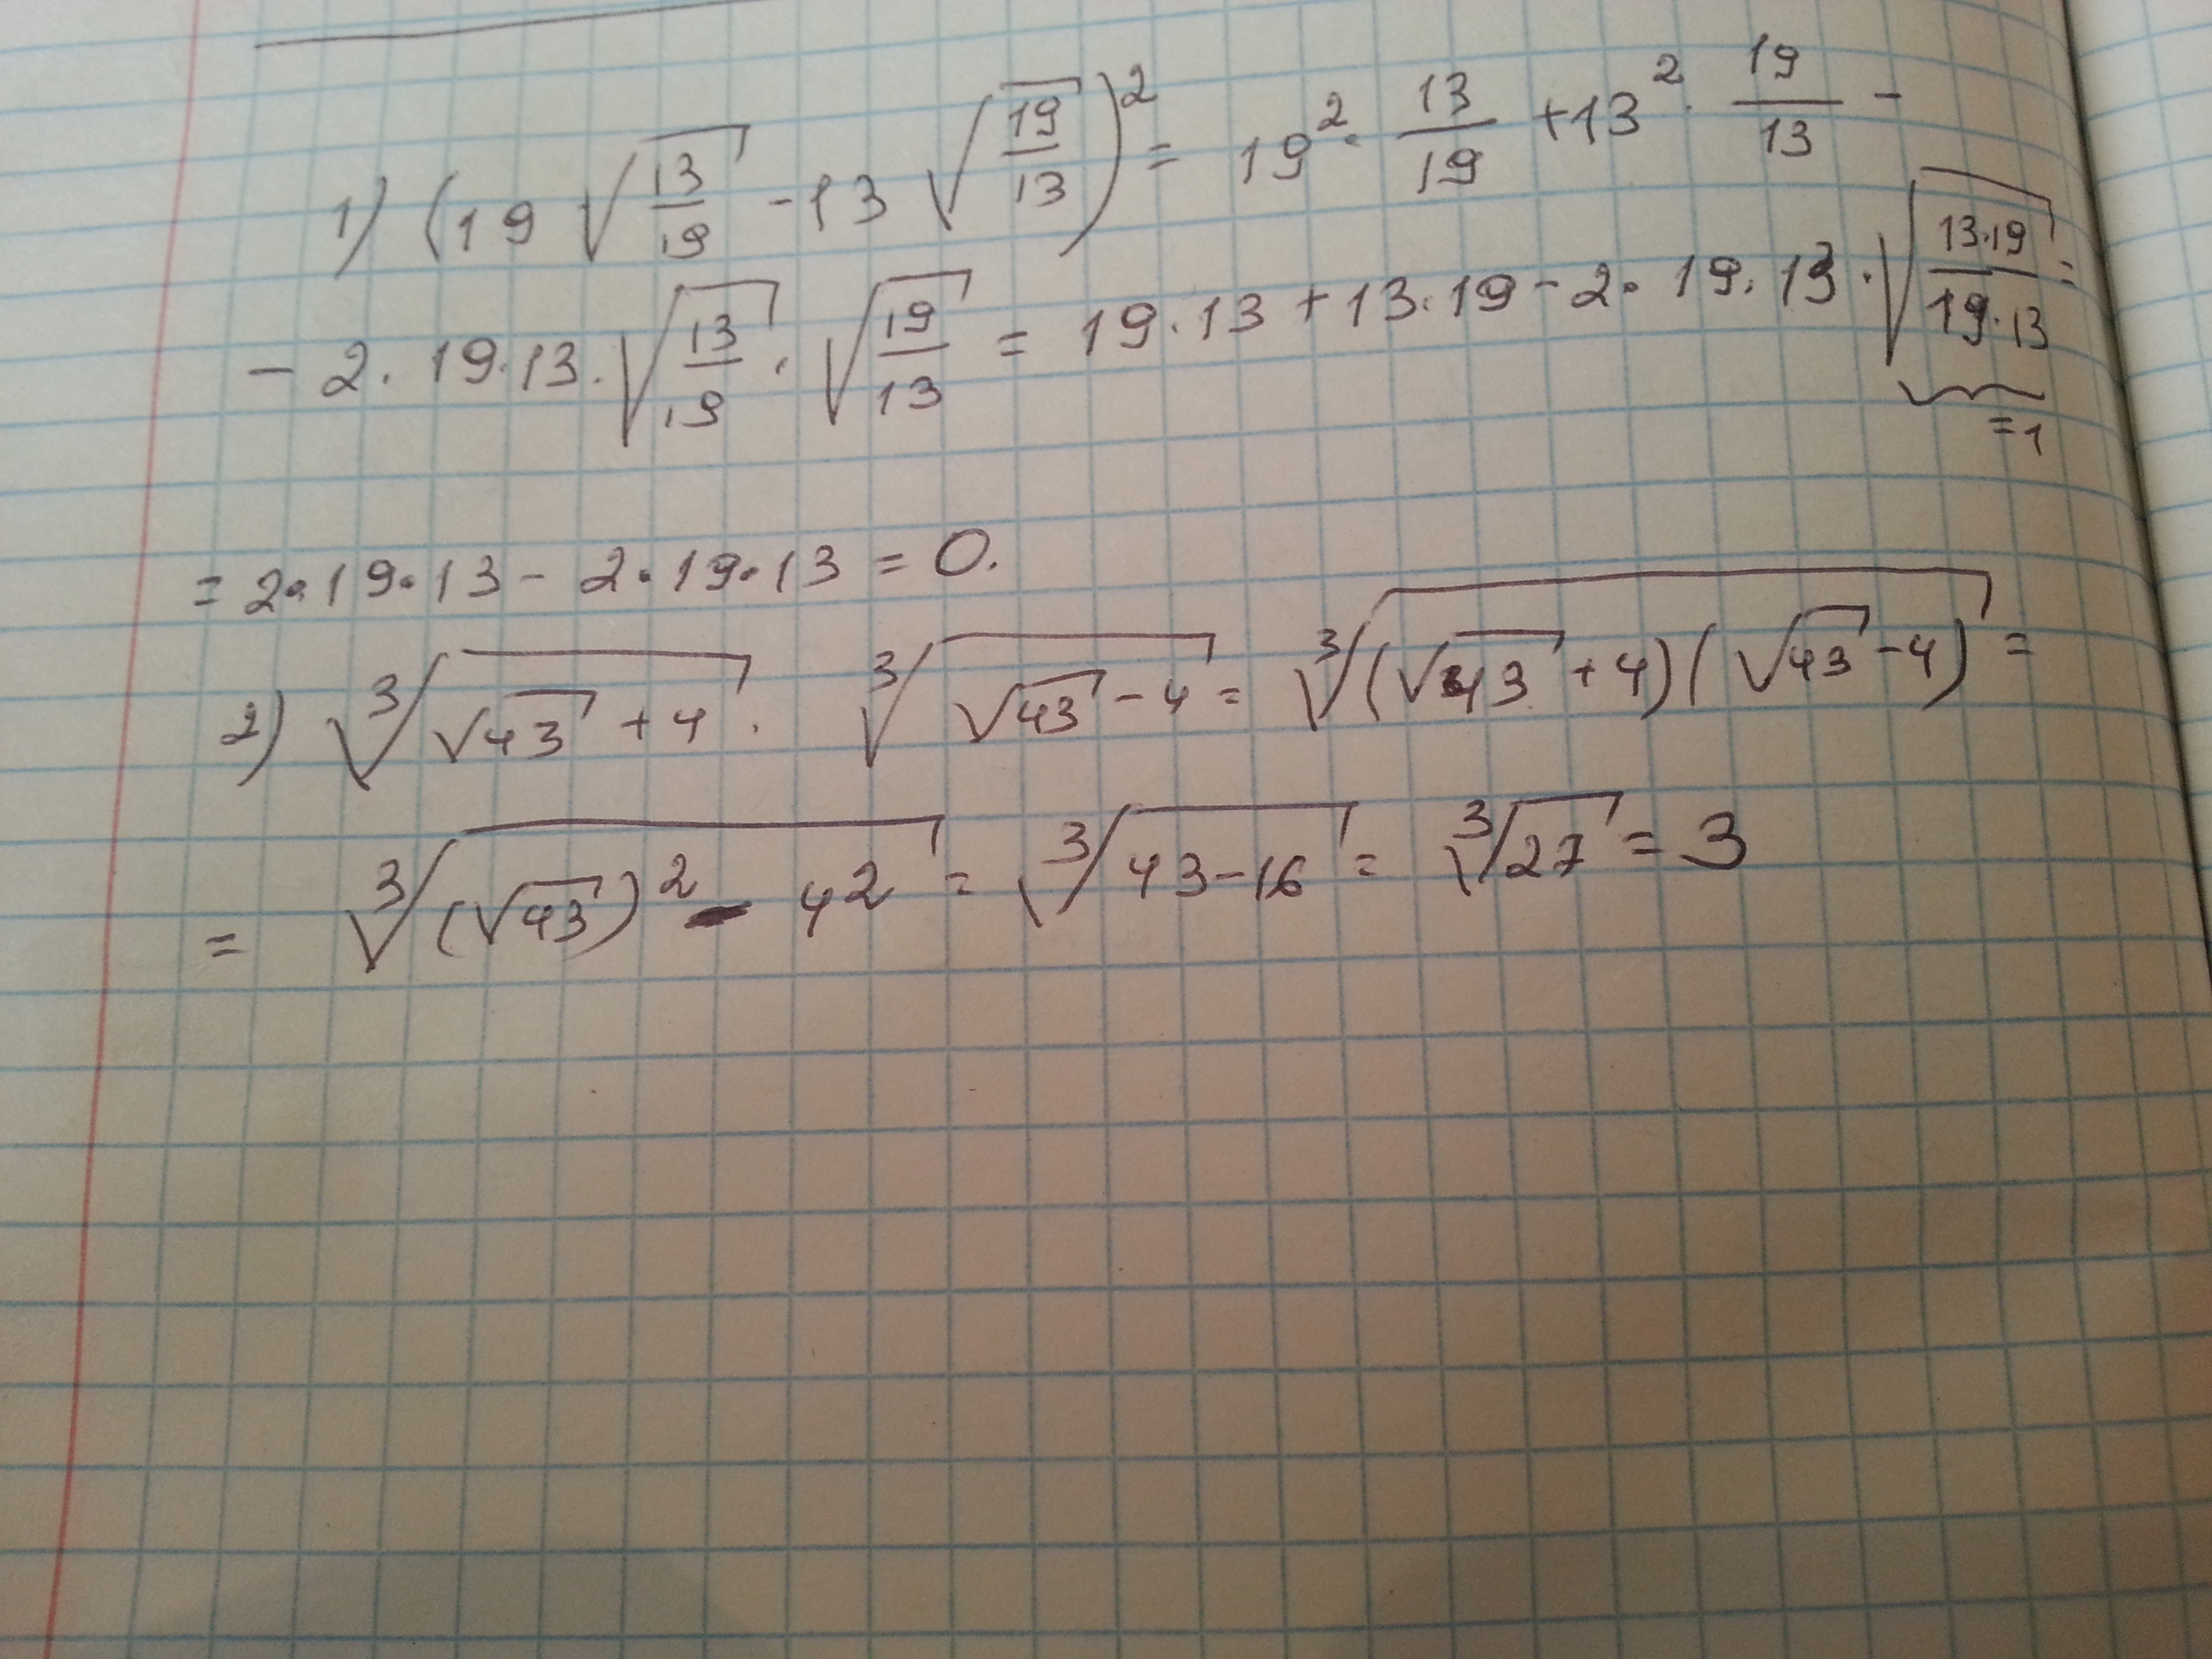 1) (19 √(13/19) - 13 √(19/13))² = 19² · 13/19 + 13² · 19/13 -
- 2 · 19 · 13 · √(13/19) · √(19/13) = 19 · 13 + 13 · 19 - 2 · 19 · 13 · √((13·19)/(19·13)) =
= 1
= 2 · 19 · 13 - 2 · 19 · 13 = 0.
2) ∛(√43 + 4) · ∛(√43 - 4) = ∛((√43 + 4)(√43 - 4)) =
= ∛((√43)² - 4²) = ∛(43 - 16) = ∛27 = 3